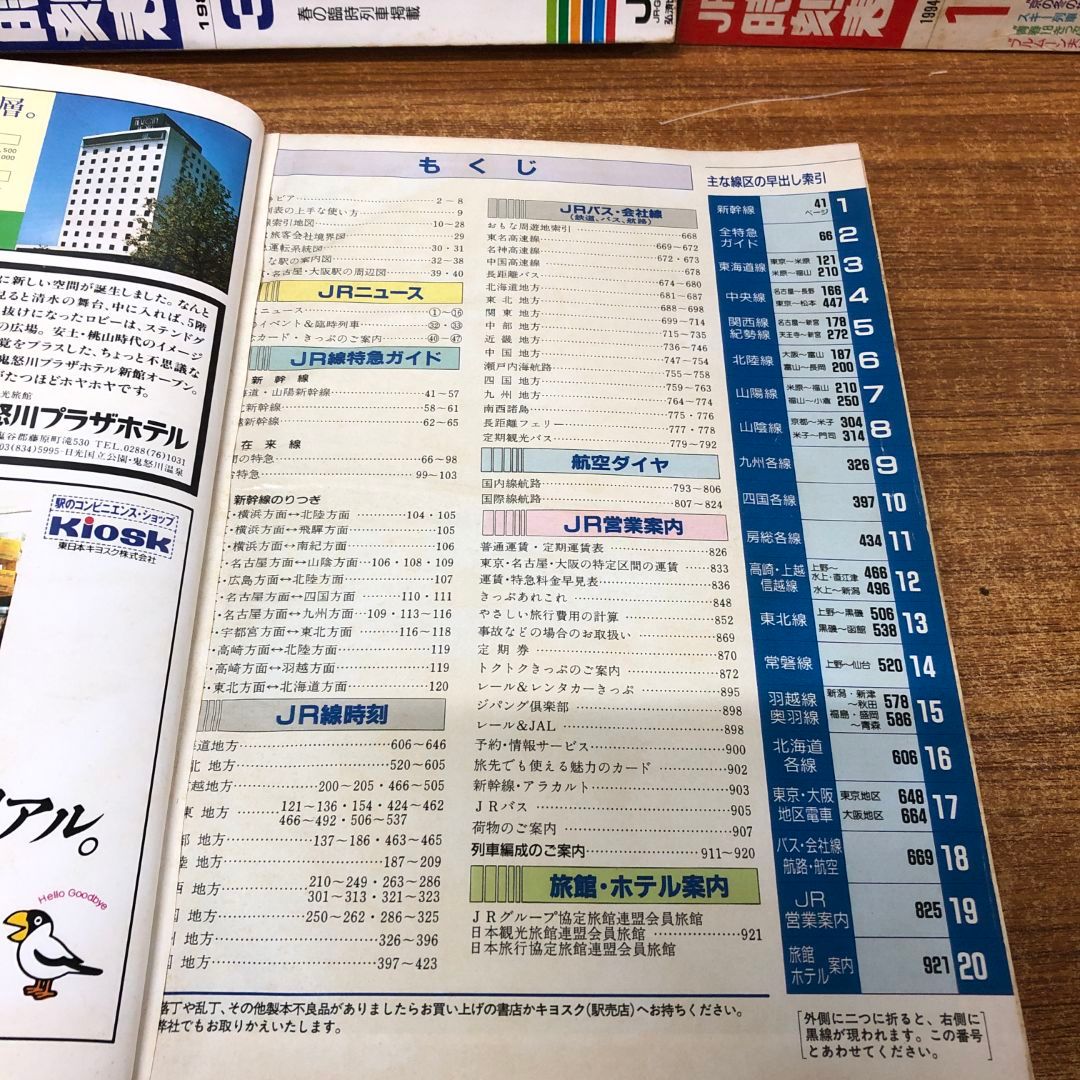 時刻表
198
3
春の臨時列車掲載
JR
時刻表
1994
スキー列車
層。
に新しい空間が誕生しました。なんと
見ると清水の舞台、中に入れば、5階
抜けになったロビーは、ステンドグ
の広場。安土・桃山時代のイメージ
覚をプラスした、ちょっと不思議な
鬼怒川プラザホテル新館オープン。
がたつほどホヤホヤです。
光旅館
怒川プラザホテル
谷郡藤原町滝530 TEL.0288(76)1031
03(834)5995・日光国立公園・鬼怒川温泉
駅のコンビニエンス・ショップ
Kiosk
東日本キヨスク株式会社
アル。
Hello Goodbye
もくじ
ピア 2～8
表の上手な使い方 9
線索引地図 10～28
旅客会社境界図 29
運転系統図 30・31
な駅の案内図 32～38
・名古屋・大阪駅の周辺図 39・40
JRニュース
ニュース ①～⑯
のイベント&臨時列車 ㉜・㉝
なカード・きっぷのご案内 ㊵・㊼
JR線特急ガイド
新幹線
海道・山陽新幹線 41～57
北新幹線 58～61
越新幹線 62～65
在来線
間の特急 66～98
特急 99～103
新幹線のりつぎ
・横浜方面↔北陸方面 104・105
・横浜方面↔飛騨方面 105
・横浜方面↔南紀方面 106
・名古屋方面↔山陰方面 106・108・109
・広島方面↔北陸方面 107
・名古屋方面↔四国方面 110・111
・名古屋方面↔九州方面 109・113～116
・宇都宮方面↔東北方面 116～118
・高崎方面↔北陸方面 119
・高崎方面↔羽越方面 119
・東北方面↔北海道方面 120
JR線時刻
海道地方 606～646
北地方 520～605
越地方 200～205・466～505
東地方 121～136・154・424～462
466～492・506～537
部地方 137～186・463～465
陸地方 187～209
西地方 210～249・263～286
301～313・321・323
国地方 250～262・286～325
州地方 326～396
国地方 397～423
JRバス・会社線
(鉄道、バス、航路)
おもな周遊地索引 668
東名高速線 669～672
名神高速線 672・673
中国高速線 678
長距離バス 674～680
北海道地方 681～687
東北地方 688～698
関東地方 699～714
中部地方 715～735
近畿地方 736～746
中国地方 747～754
瀬戸内海航路 755～758
四国地方 759～763
九州地方 764～774
南西諸島 775・776
長距離フェリー 777・778
定期観光バス 779～792
航空ダイヤ
国内線航路 793～806
国際線航路 807～824
JR営業案内
普通運賃・定期運賃表 826
東京・名古屋・大阪の特定区間の運賃 833
運賃・特急料金早見表 836
きっぷあれこれ 848
やさしい旅行費用の計算 852
事故などの場合のお取扱い 869
定期券 870
トクトクきっぷのご案内 872
レール&レンタカーきっぷ 895
ジパング倶楽部 898
レール&JAL 898
予約・情報サービス 900
旅先でも使える魅力のカード 902
新幹線・アラカルト 903
JRバス 905
荷物のご案内 907
列車編成のご案内 911～920
旅館・ホテル案内
JRグループ協定旅館連盟会員旅館
日本観光旅館連盟会員旅館 921
日本旅行協定旅館連盟会員旅館
落丁や乱丁、その他製本不良品がありましたらお買い上げの書店かキヨスク(駅売店)へお持ちください。
弊社でもお取りかえいたします。
主な線区の早出し索引
新幹線 41ページ 1
全特急ガイド 66 2
東海道線 東京～米原 121 米原～福山 210 3
中央線 名古屋～長野 166 東京～松本 447 4
関西線 紀勢線 名古屋～新宮 178 天王寺～新宮 272 5
北陸線 大阪～富山 187 富山～長岡 200 6
山陽線 米原～福山 210 福山～小倉 250 7
山陰線 京都～米子 304 米子～門司 314 8
九州各線 326 9
四国各線 397 10
房総各線 434 11
高崎・上越 信越線 上野～水上・直江津 466 水上～新潟 496 12
東北線 上野～黒磯 506 黒磯～函館 538 13
常磐線 上野～仙台 520 14
羽越線 奥羽線 新潟・新津～秋田 578 福島・盛岡～青森 586 15
北海道各線 606 16
東京・大阪地区電車 東京地区 648 大阪地区 664 17
バス・会社線 航路・航空 669 18
JR営業案内 825 19
旅館ホテル案内 921 20
外側に二つに折ると、右側に
黒線が現われます。この番号
とあわせてください。